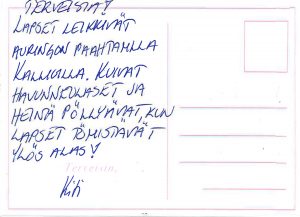 TERVEISIÄ!
LAPSET LEIKKIVÄT
AURINGON PAAHTAMILLA
KALLIOILLA. KUIVAT
HAVUNNEULASET JA
HEINÄ PÖLLYÄVÄT, KUN
LAPSET TÖMISTÄVÄT
YLÖS ALAS!
Terveisin,
Kiti